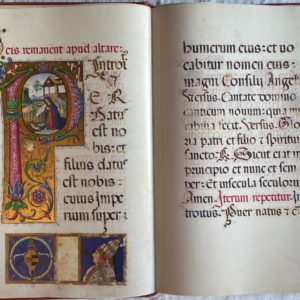 ocis remanent apud altare:
Introit
P E R
natus
est no
bis: et
filius datus
est nobis:
cuius Impe
rium super
humerum eius: et uo
cabitur nomen eius
magni Consilij Angel
Versus. Cantate domino
canticum
quia mirabilia fecit. Versus. Glo
ria patri et filio et spiritui
sancto. R. Sicut erat in
principio et nunc et sem
per: et in secula seculorum
Amen. Iterum repetitur In
troitus. Puer natus e